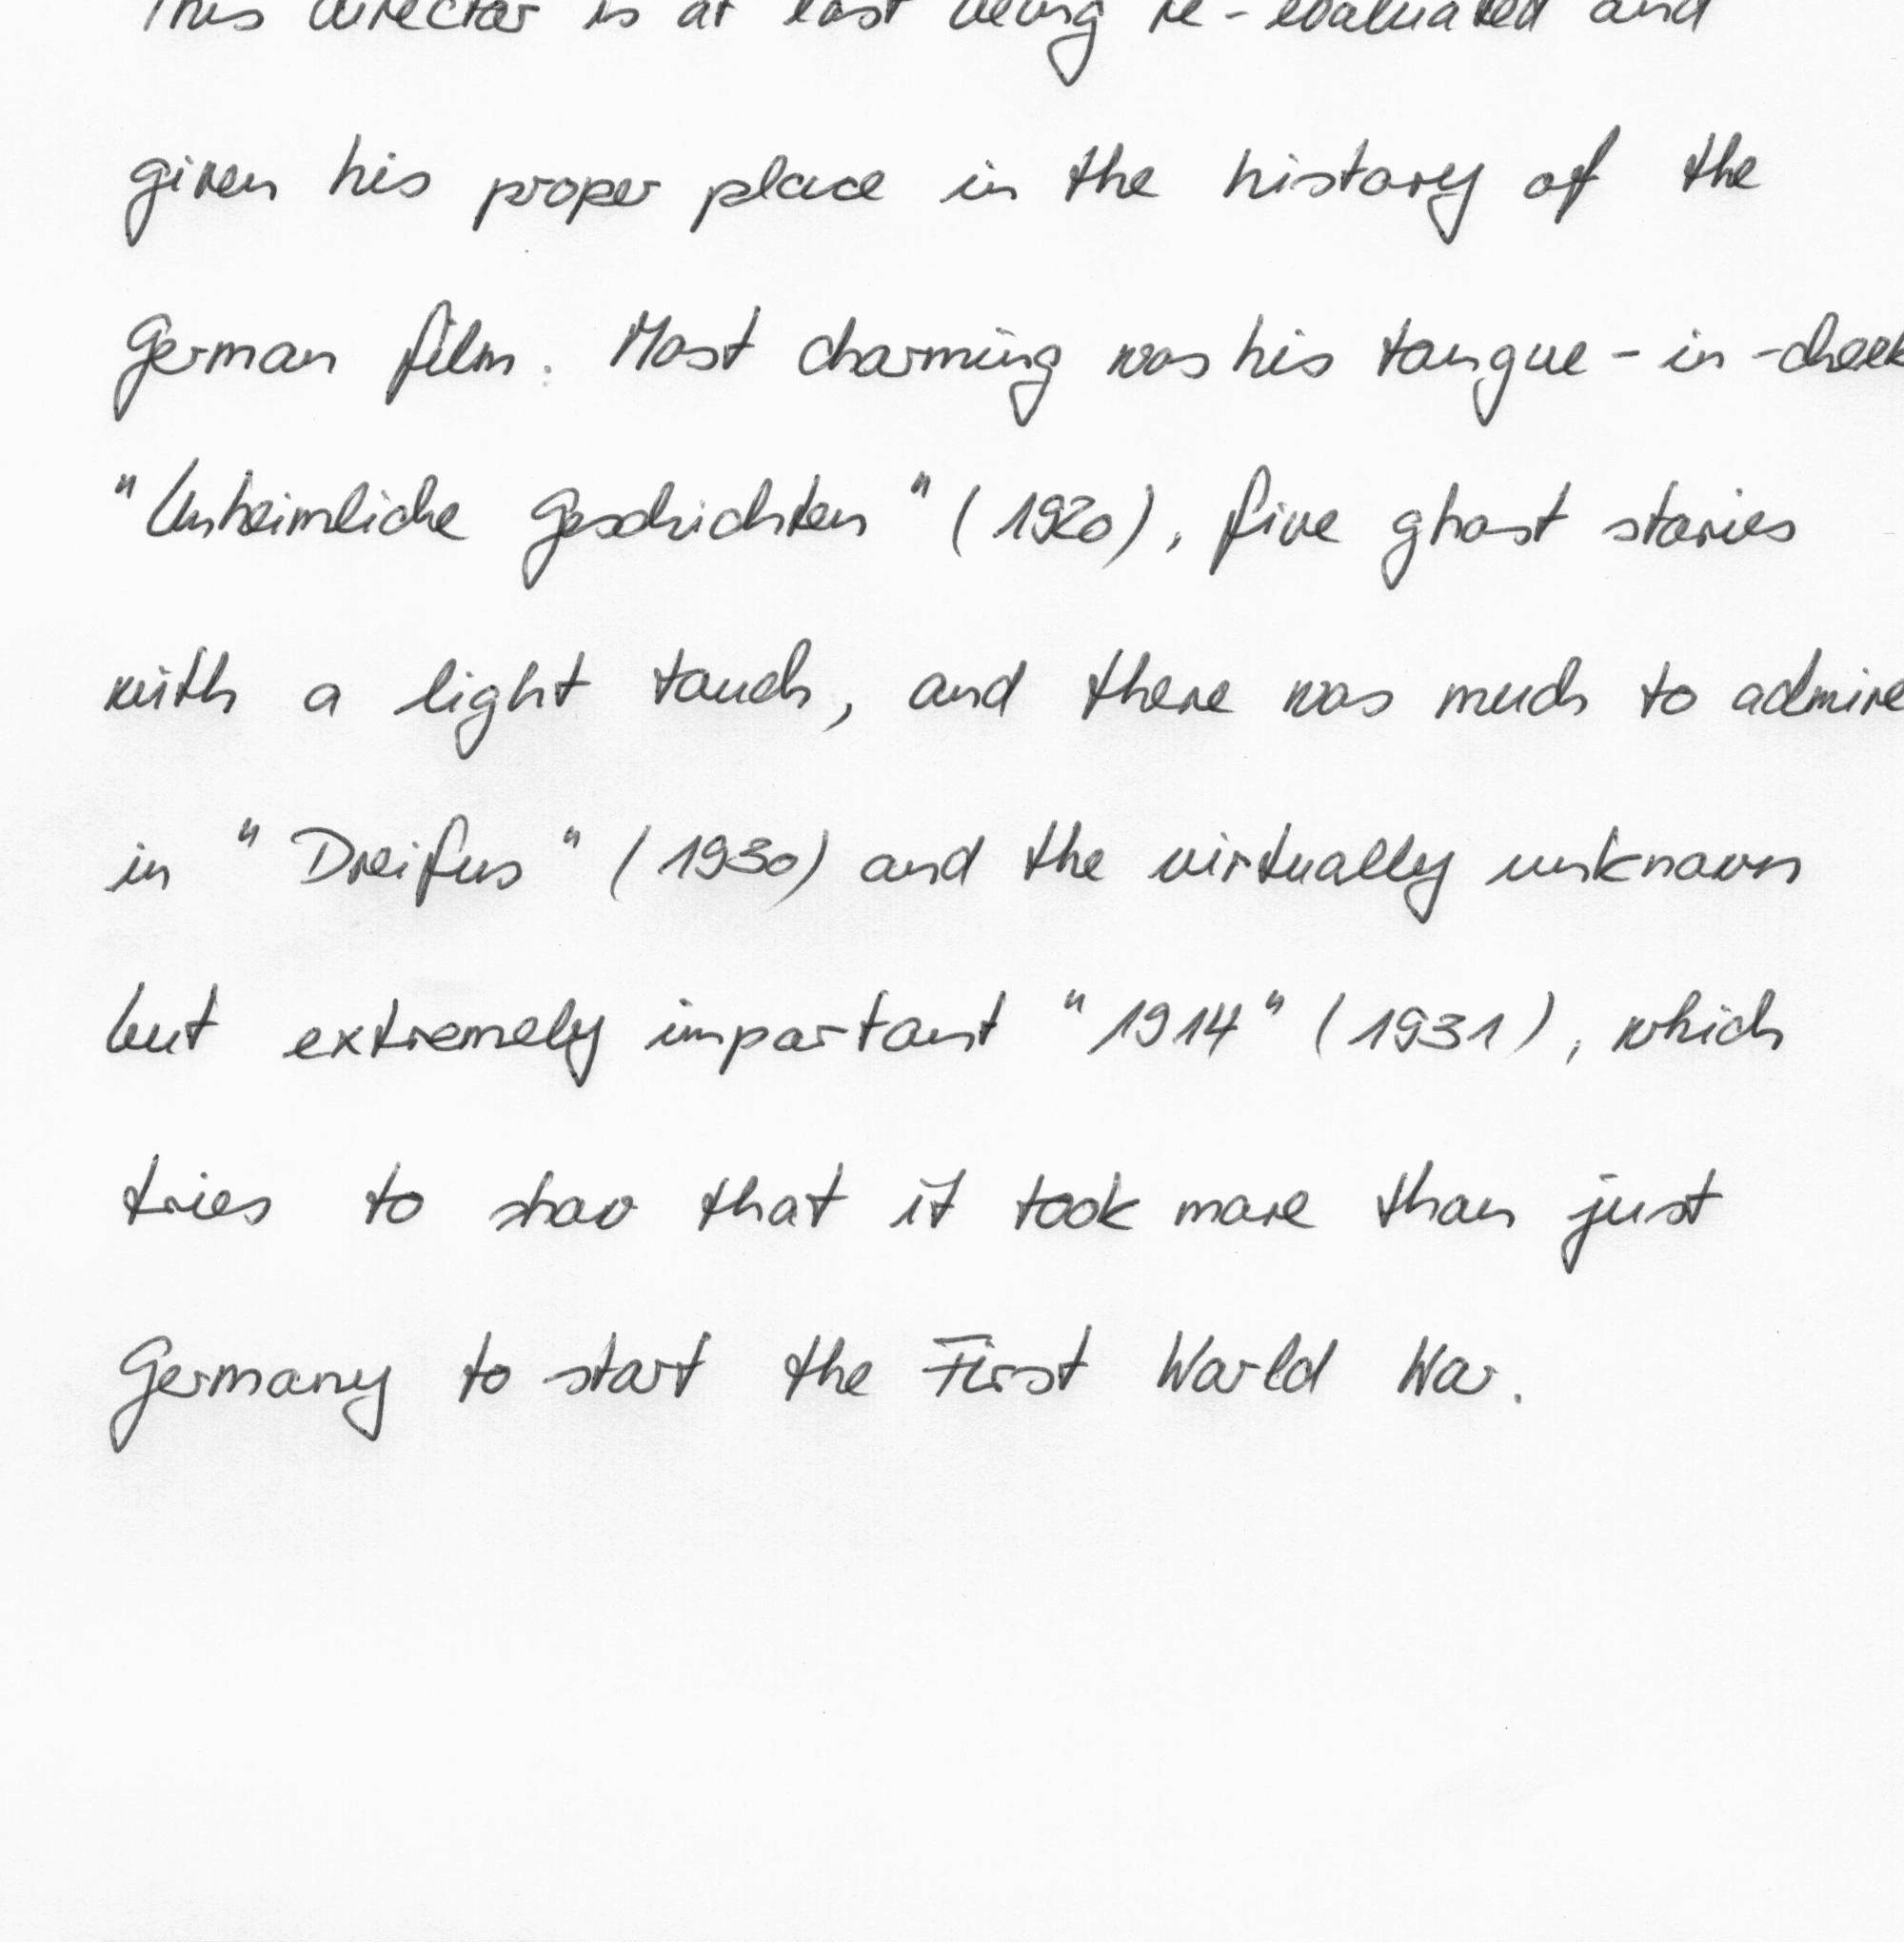 This director is at last being re-evaluated and
given his proper place in the history of the
German film. Most charming was his tongue-in-cheek
"Unheimliche Geschichten" (1920), five ghost stories
with a light touch, and there was much to admire
in "Dreifus" (1930) and the virtually unknown
but extremely important "1914" (1931), which
tries to show that it took more than just
Germany to start the First World War.